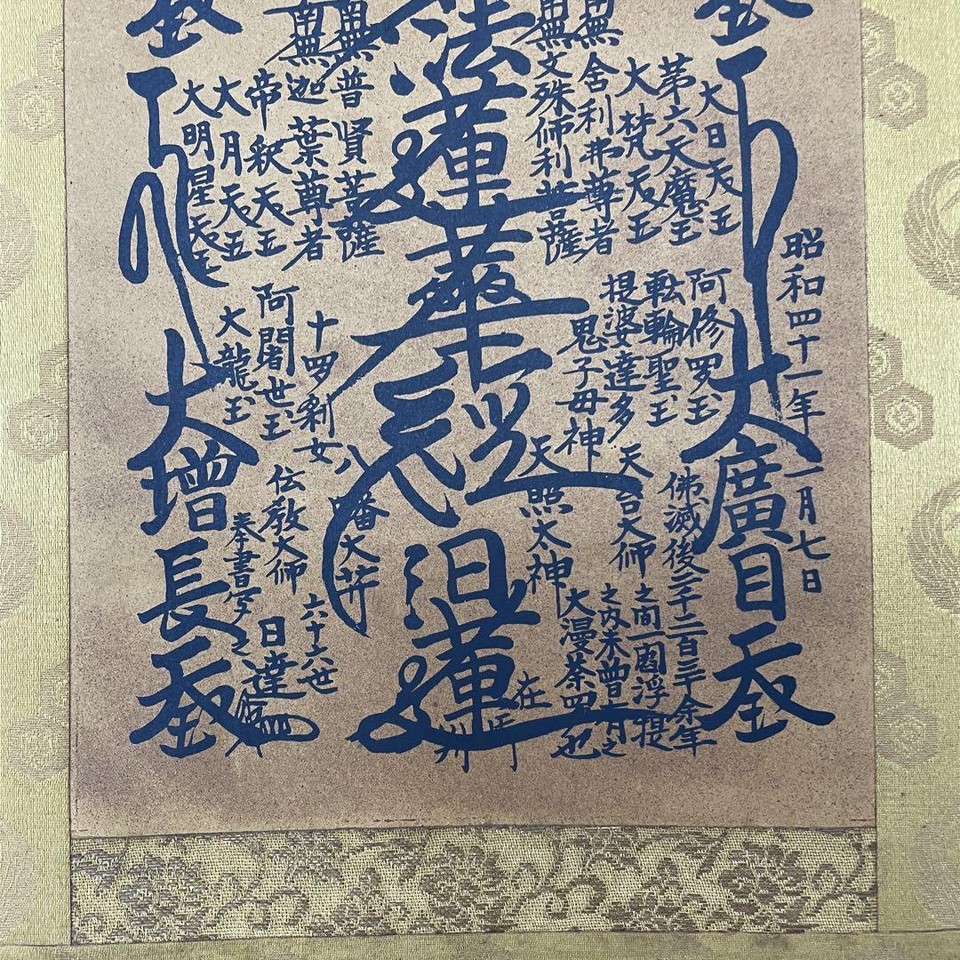 昭和四十一年一月七日
大廣目天王
大日天王
第六天魔王
大梵天王
南無舍利弗尊者
南無文殊師利菩薩
阿修罗王
転輪聖王
提婆達多
鬼子母神
佛滅後二千二百三十余年
之間一閻浮提
之内未曾有之
大漫荼羅也
天台大師
天照太神
法蓮華經
日蓮
在御判
南無普賢菩薩
南無迦葉尊者
帝釈天王
大月天王
大明星天王
十四羅刹女
阿闍世王
大龍王
八幡大菩薩
伝教大師
六十六世
日達
奉書写之
大增長天王